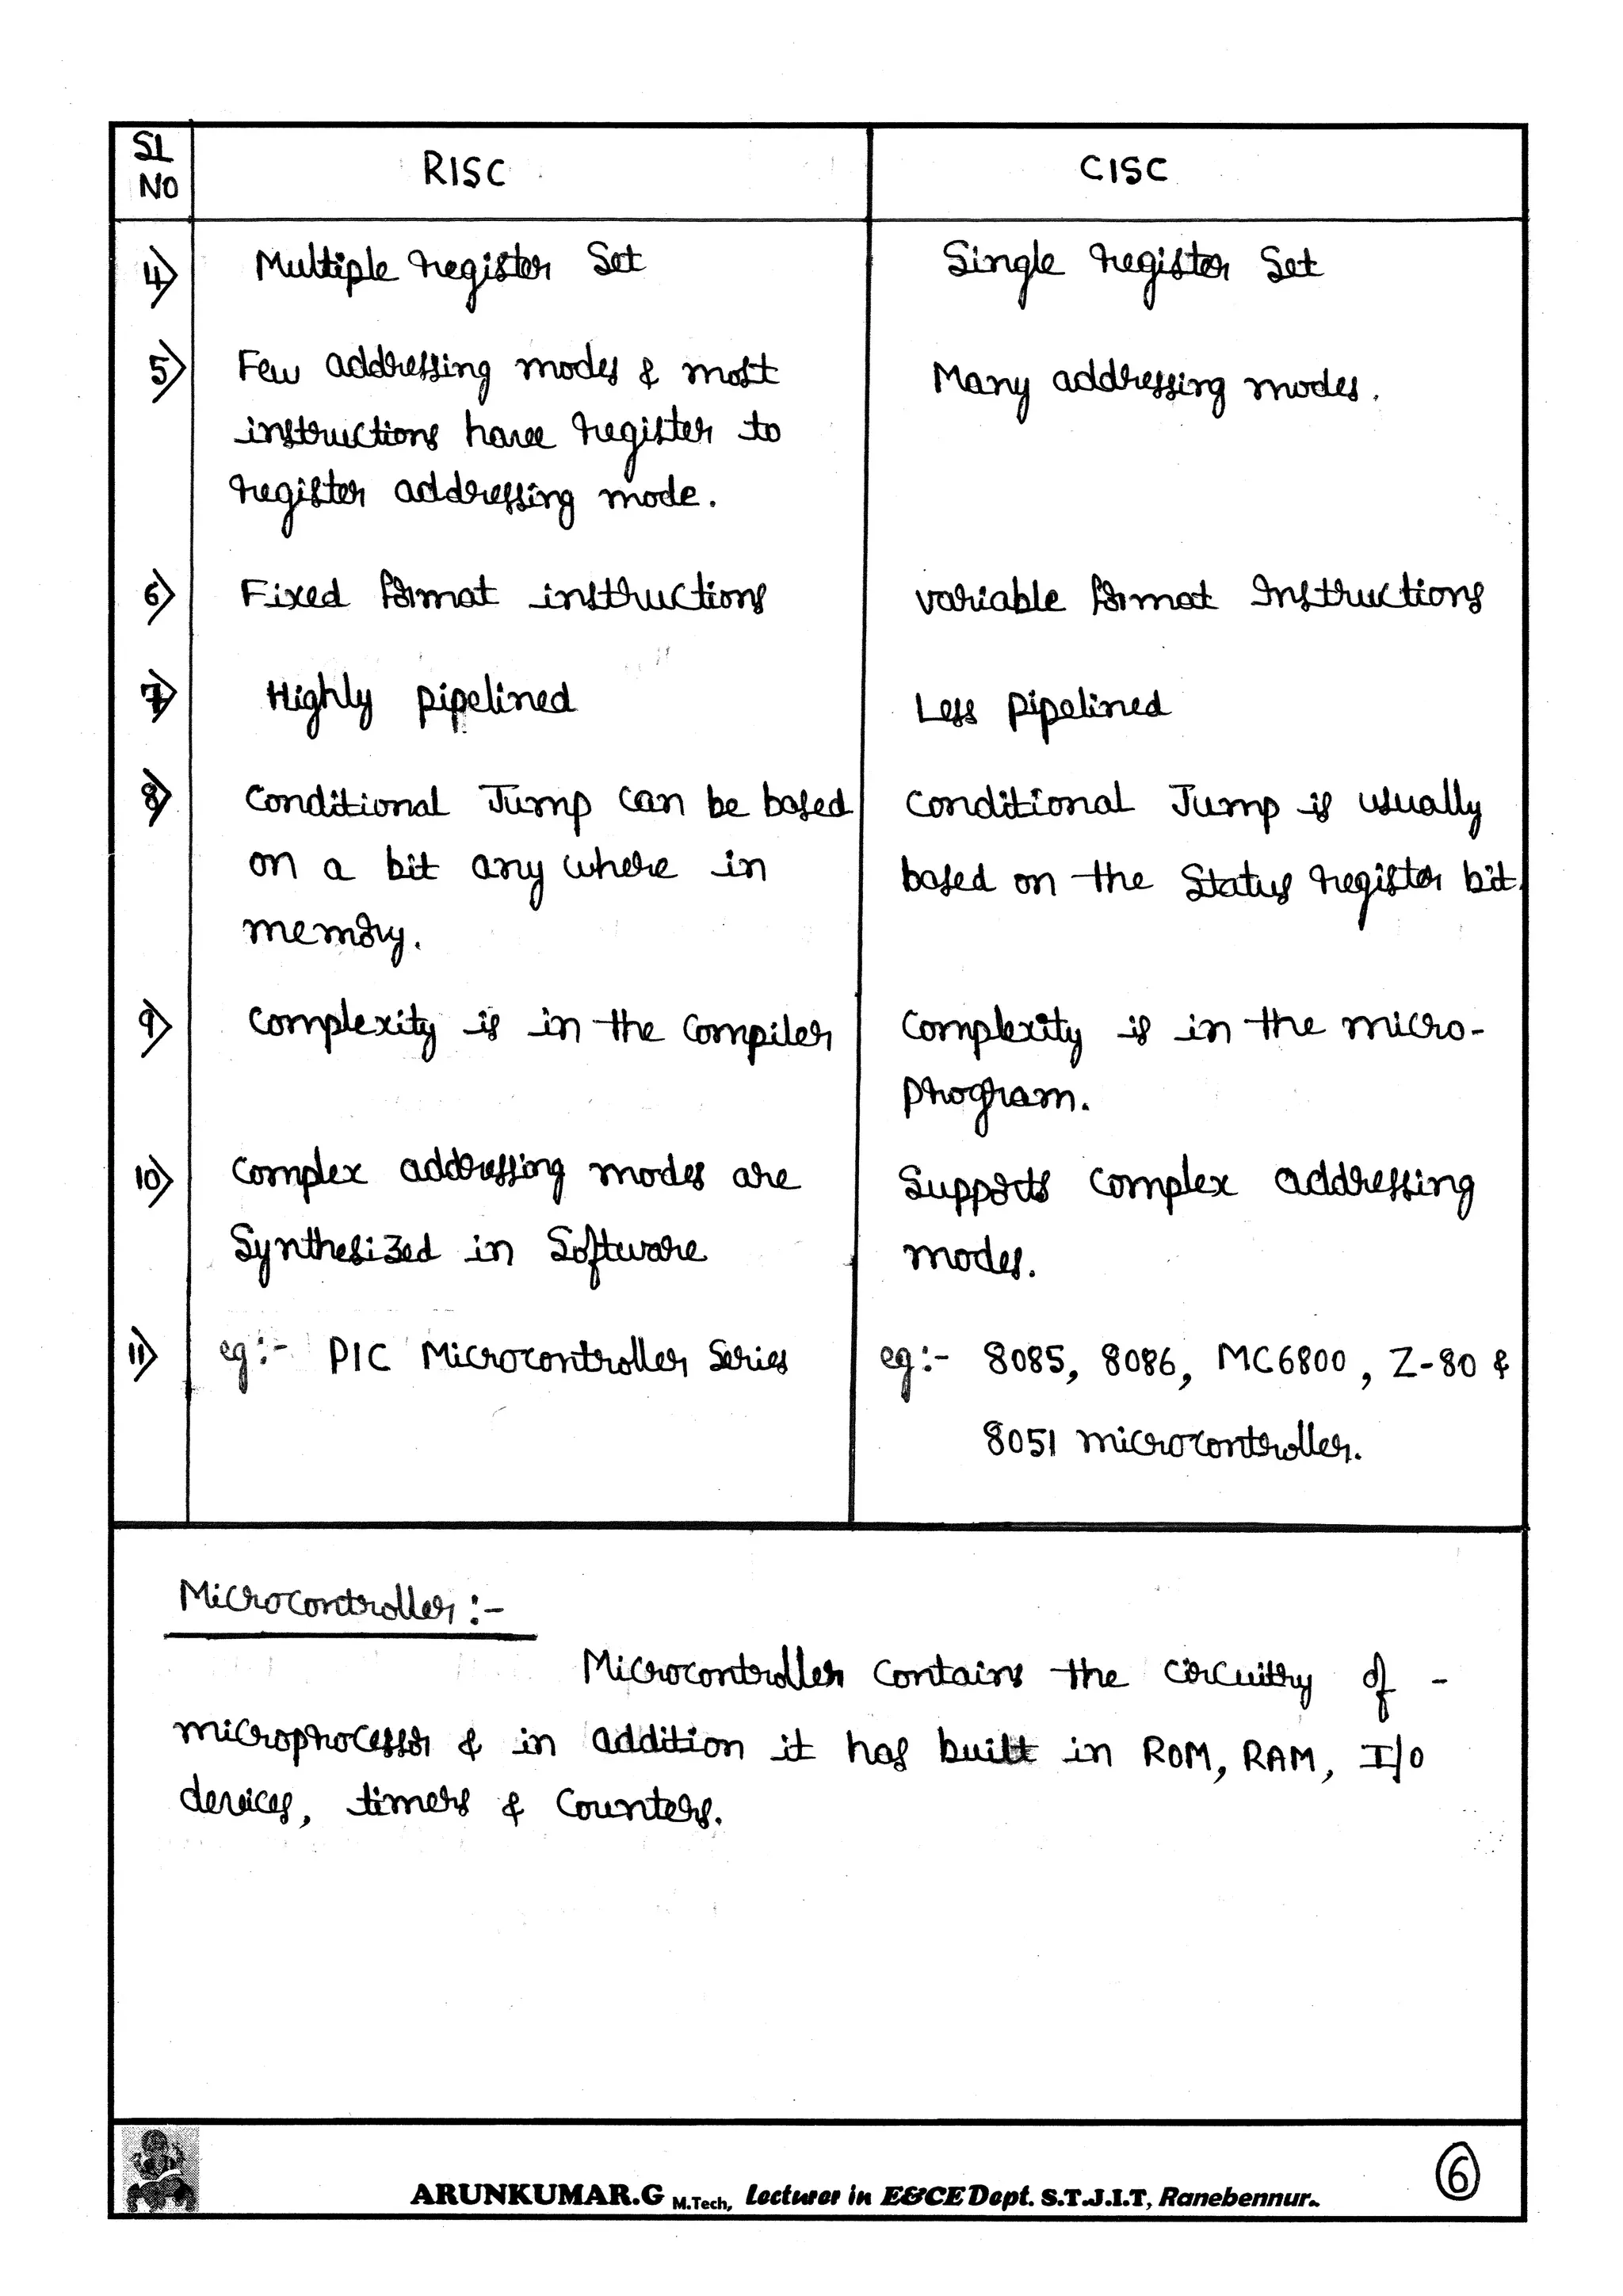 SL NO RISC CISC
4) Multiple register Set Single register Set
5) Few addressing modes & most Many addressing modes.
instructions have register to
register addressing mode.
6) Fixed format instructions variable format Instructions
7) Highly pipelined Less pipelined
8) Conditional Jump can be based Conditional Jump is usually
on a bit any where in based on the Status register bit.
memory.
9) Complexity is in the Compiler Complexity is in the micro-
program.
10) Complex addressing modes are Supports Complex addressing
Synthesized in Software modes.
11) eg:- PIC Microcontroller Series eg:- 8085, 8086, MC6800, Z-80 &
8051 microcontroller.
Microcontroller:-
Microcontroller Contains the circuitry of -
microprocessor & in addition it has built in ROM, RAM, I/O
devices, timers & Counters.
ARUNKUMAR.G M.Tech, Lecturer in E&CE Dept. S.T.J.I.T, Ranebennur. 6